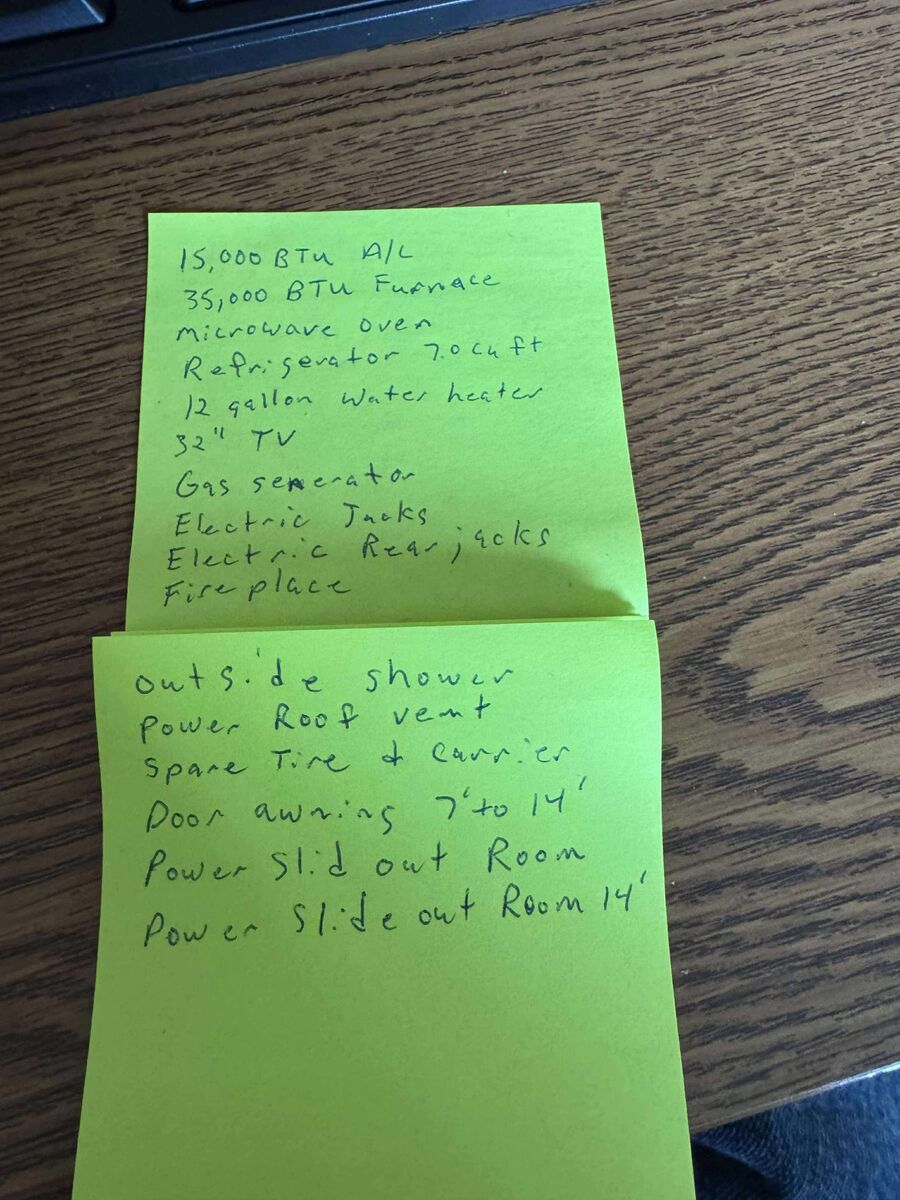 15,000 BTU A/C
35,000 BTU Furnace
microwave oven
Refrigerator 7.0 cu ft
12 gallon water heater
32" TV
Gas generator
Electric Jacks
Electric Rear jacks
Fireplace
outside shower
Power Roof vent
Spare Tire & Carrier
Door awning 7' to 14'
Power Slid out Room
Power Slide out Room 14'